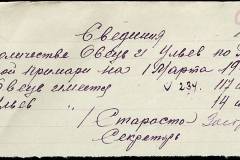 Сведения
количестве Овец и Ульев по
кой примари на 1 Марта 19
Овец имеется 234. 117
Ульев " 14
/ Староста
Секретарь